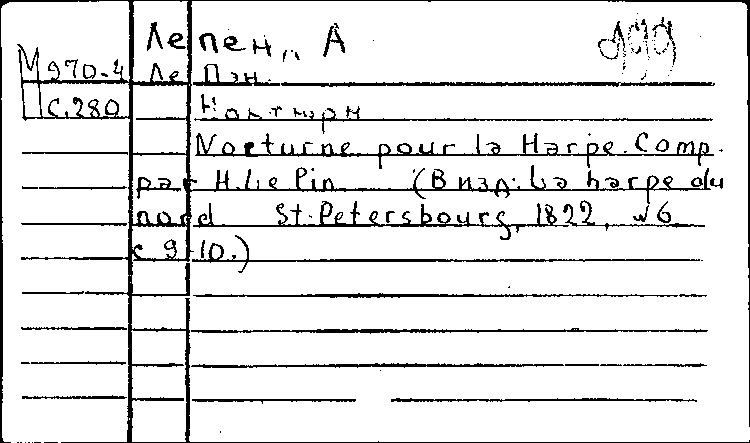 Лепен, А
М 970-4 Ле Пэн.
П с.280 Ноктюрн
Nocturne pour la Harpe. Comp.
par H. Le Pin (В изд: La harpe du
nord St-Petersbourg, 1822, №6
с 9-10.)